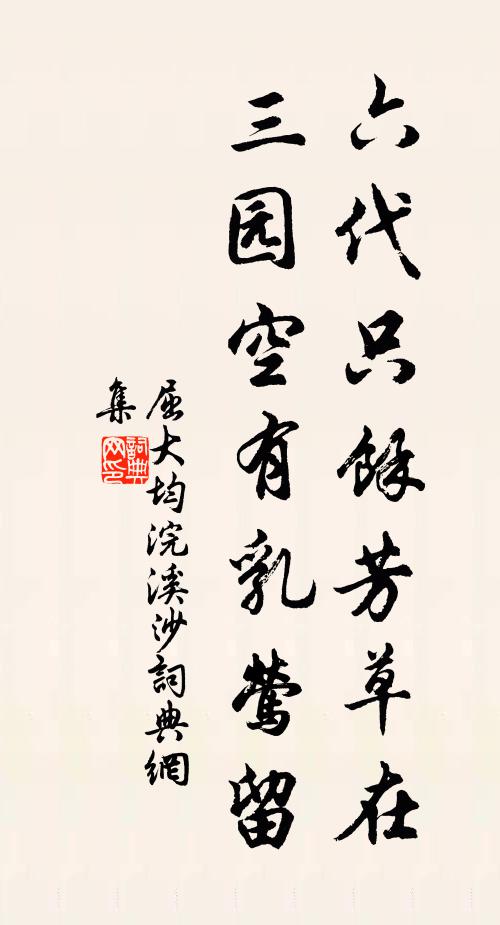 六代只餘芳草在
三园空有乳鶯留
屈大均浣溪沙詞典網
集
詞典网印